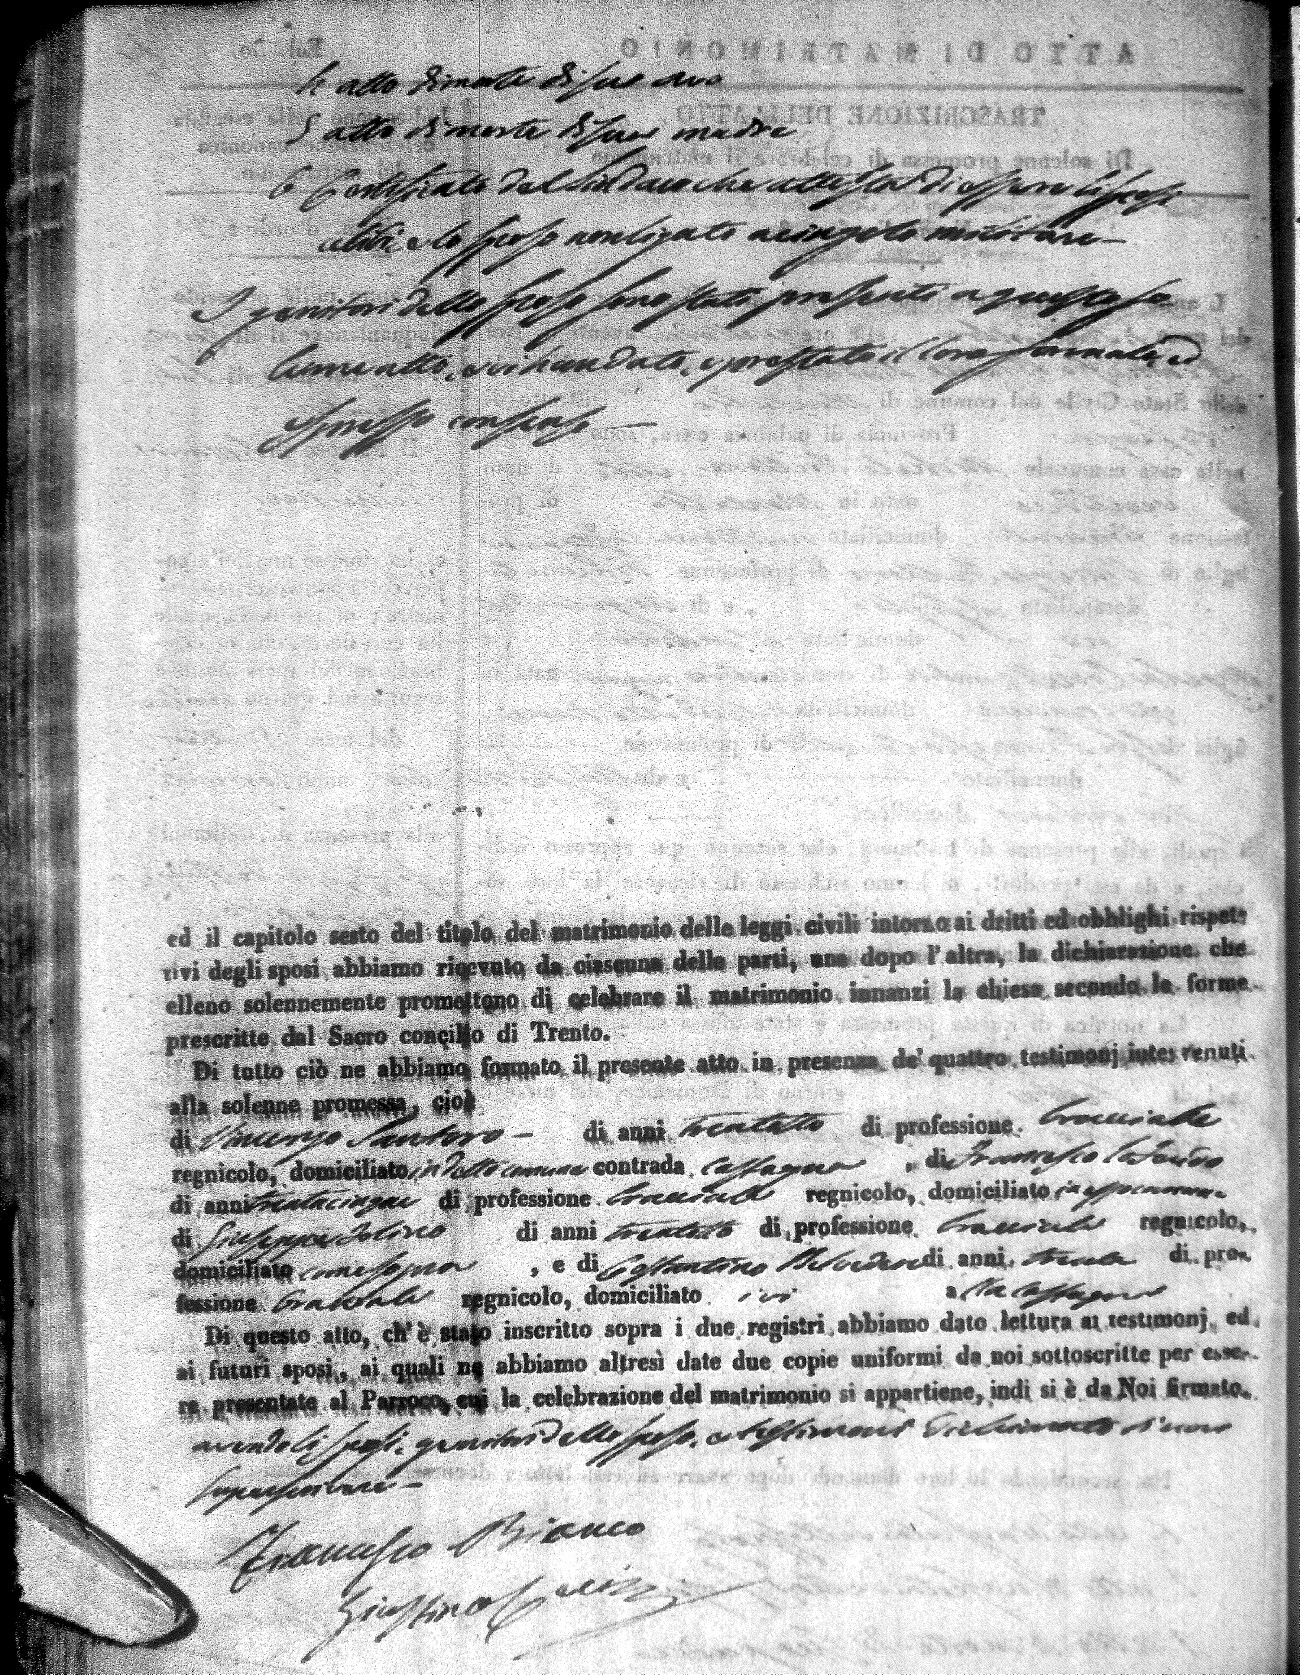 4 atto di morte di suo avo
5 atto di morte di sua madre
6 Certificato del Sindaco che attesta di essere li sposi
celibi e lo sposo non ligato a cingolo militare
I genitori dello sposo sono stati presenti a questo so
lenne atto, e ci han dato, e prestato il loro formale, ed
espresso consenso
ed il capitolo sesto del titolo del matrimonio delle leggi civili intorno ai dritti ed obblighi rispet
tivi degli sposi abbiamo ricevuto da ciascuna delle parti, una dopo l'altra, la dichiarazione che
elleno solennemente promettono di celebrare il matrimonio innanzi la chiesa secondo le forme
prescritte dal Sacro concilio di Trento.
Di tutto ciò ne abbiamo formato il presente atto in presenza de' quattro testimonj intervenuti
alla solenne promessa, cioè
di Vincenzo Santoro di anni trentotto di professione bracciale
regnicolo, domiciliato in detto comune contrada , di Francesco
di anni trentacinque di professione bracciale regnicolo, domiciliato
di Giuseppe di anni trentotto di professione bracciale regnicolo,
domiciliato come sopra , e di Costantino di anni trenta di pro-
fessione bracciale regnicolo, domiciliato ivi
Di questo atto, ch'è stato inscritto sopra i due registri abbiamo dato lettura ai testimonj, ed
ai futuri sposi, ai quali ne abbiamo altresì date due copie uniformi da noi sottoscritte per esse-
re presentate al Parroco, cui la celebrazione del matrimonio si appartiene, indi si è da Noi firmato.
avendo li sposi, genitori dello sposo, e testimoni dichiarato di non
saper scrivere
Francesco Bianco
Giustino